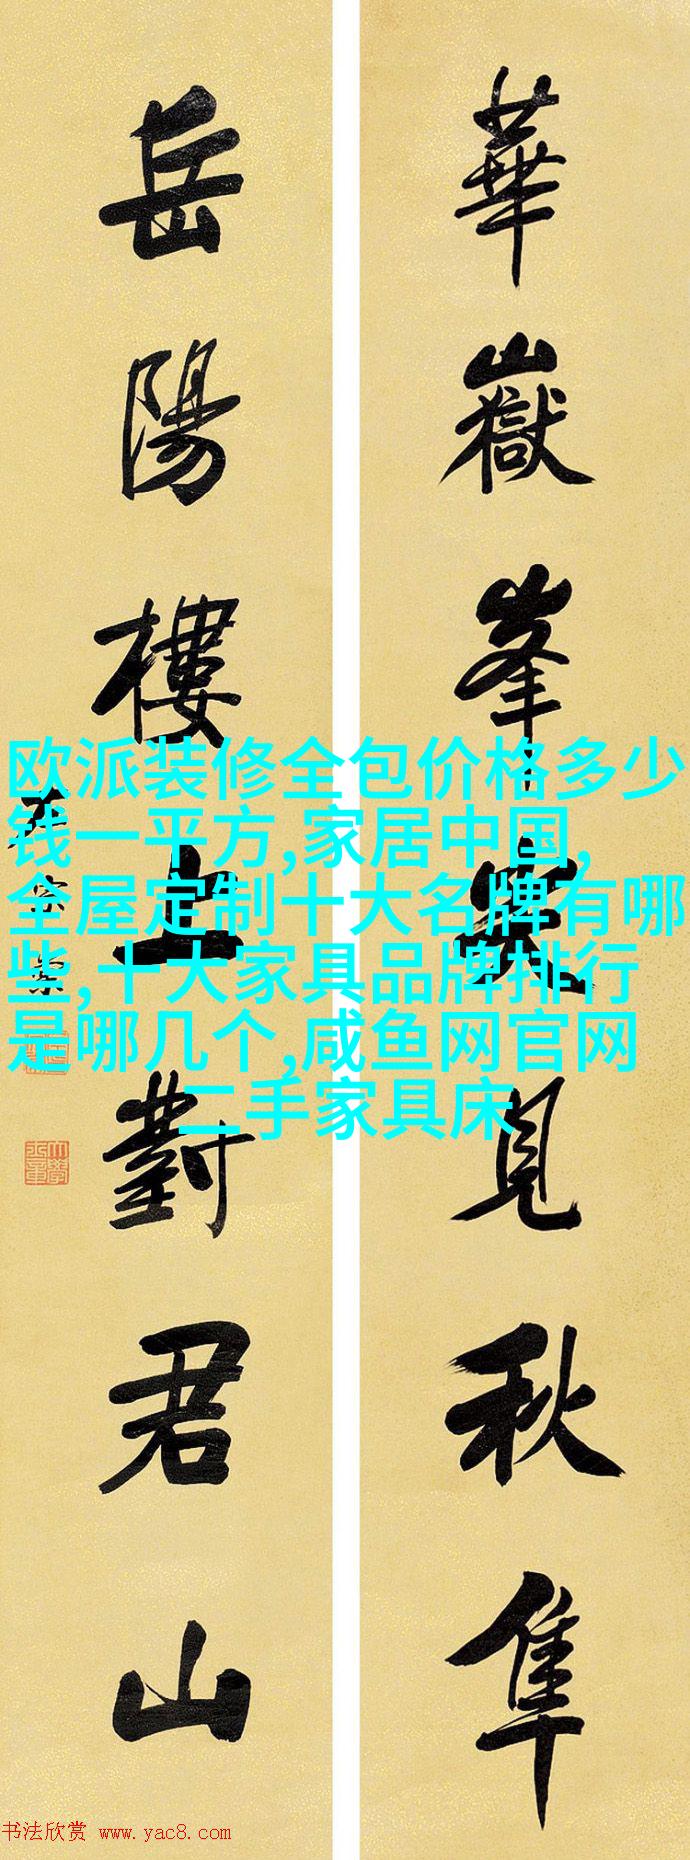 華嶽峯見秋隼
岳陽樓上對君山
欧派装修全包价格多少
钱一平方,家居中国,
全屋定制十大名牌有哪
些,十大家具品牌排行
是哪几个,咸鱼网官网
二手家具床
书法欣赏 www.yac8.com